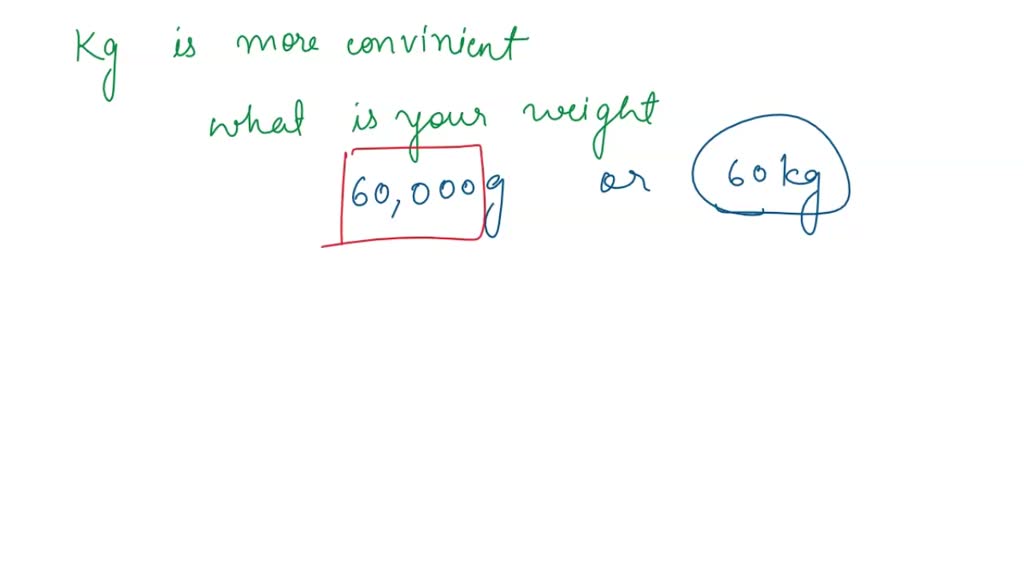 Kg is more convinient
what is your weight
60,000g or 60kg